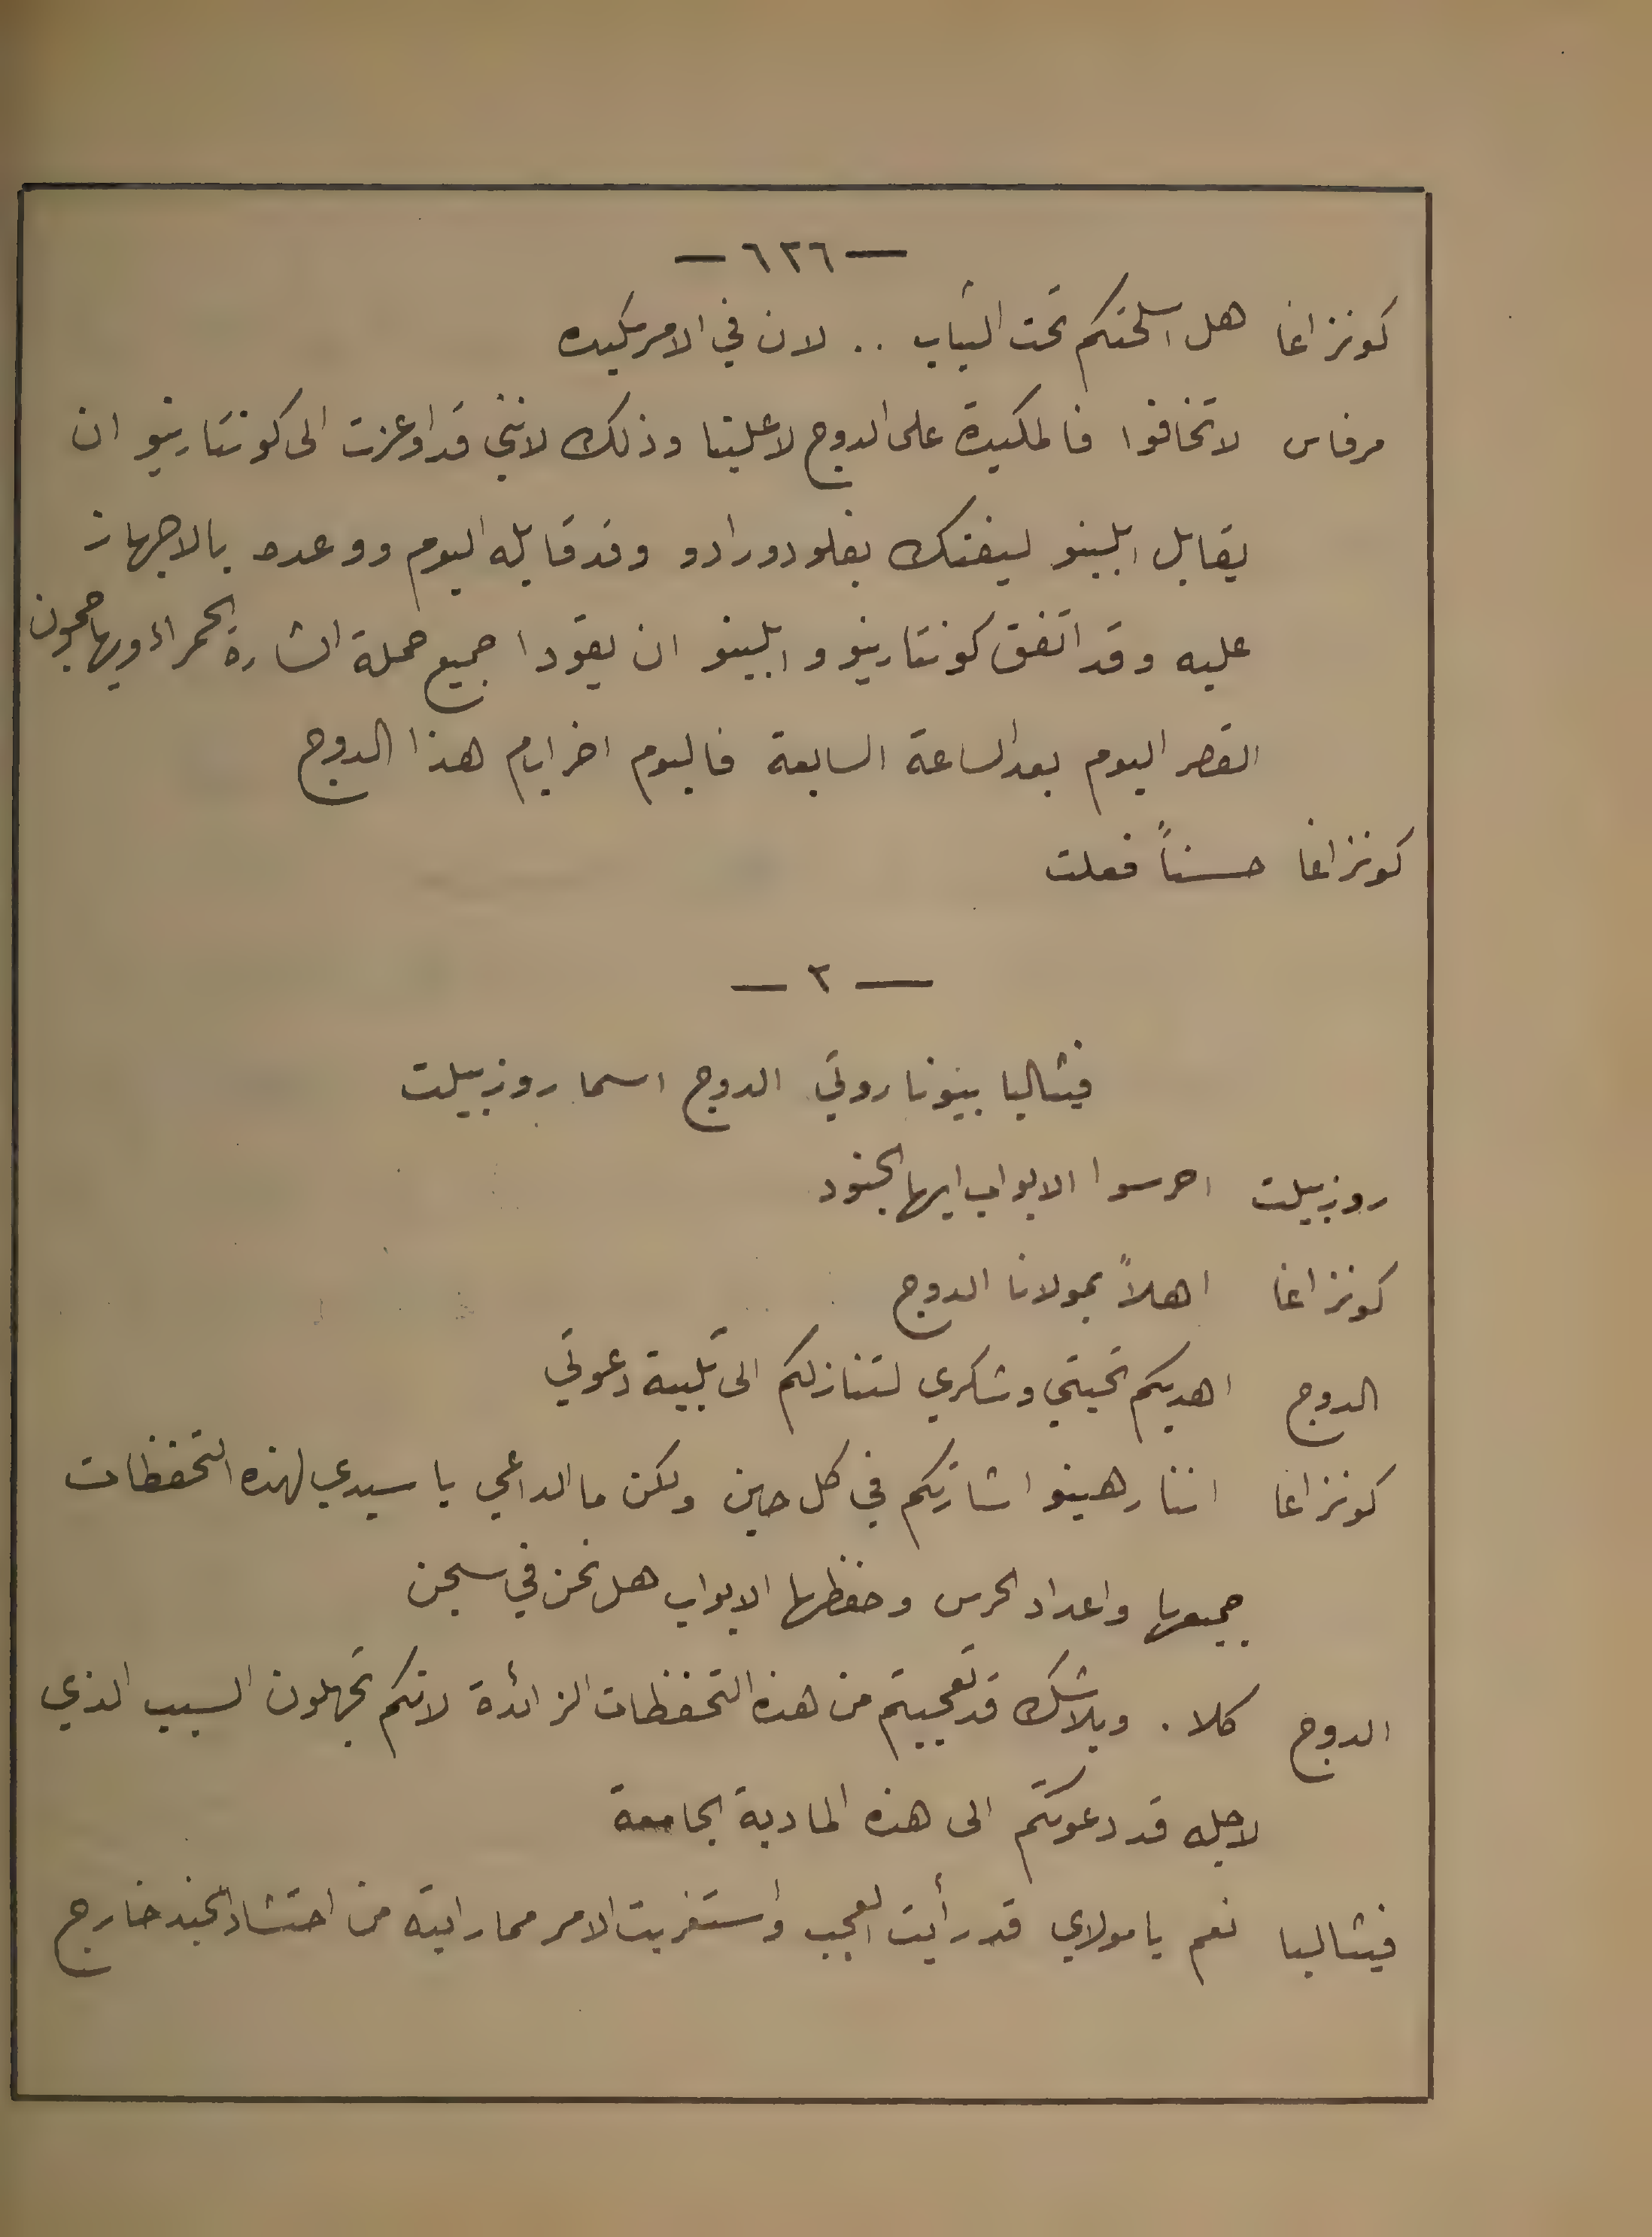 — ٦٢٦ —
كونزاغا هل اسلحتكم تحت الثياب .. لان في الامر مكيده
مرفاس لا تخافوا فالمكيدة على الدوج لا علينا وذلك لانني قد اوعزت الى كونتارينو ان
يقابل ابلينو ليفتك بفلودورادو وقد قابله اليوم ووعده بالاجهاز
عليه وقد اتفق كونتارينو وابلينو ان يقودا جميع حملة الشارة الحمراء ويهاجمون
القصر اليوم بعد الساعة السابعة فاليوم اخر ايام هذا الدوج
كونزاغا حسناً فعلت
— ٢ —
فيتاليا بينوناروتي الدوج اسما روزبيلت
روزبيلت احرسوا الابواب ايها الجنود
كونزاغا اهلاً بمولانا الدوج
الدوج اهديكم تحيتي وشكري لتنازلكم الى تلبية دعوتي
كونزاغا اننا رهينو اشارتكم في كل حين ولكن ما الداعي يا سيدي لهذه التحفظات
جميعها واعداد الحرس وحفظها الابواب هل نحن في سجن
الدوج كلا . وبلا شك قد تعجبتم من هذه التحفظات الزائدة لانكم تجهلون السبب الذي
لاجله قد دعوتكم الى هذه المادبة الجامعة
فيتاليا نعم يا مولاي قد رأيت العجب وأستغربت الامر مما رايته من احتشاد الجند خارج